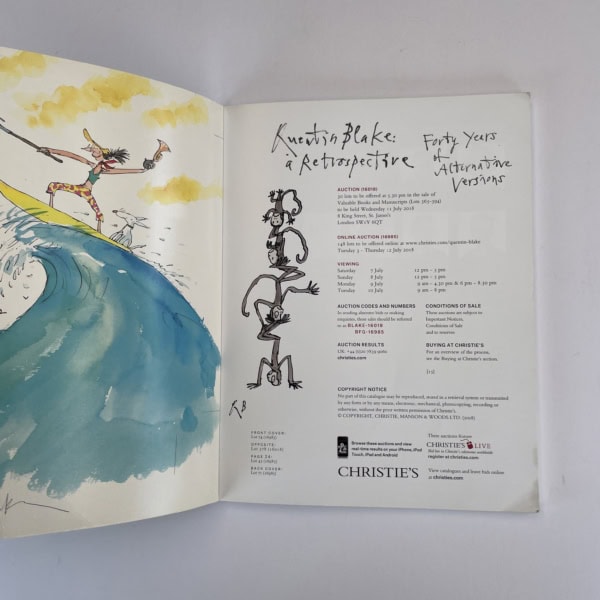 Quentin Blake:
a Retrospective
Forty Years
of
Alternative
Versions
AUCTION (16018)
30 lots to be offered at 2.30 pm in the sale of
Valuable Books and Manuscripts (Lots 365-394)
to be held Wednesday 11 July 2018
8 King Street, St. James's
London SW1Y 6QT
ONLINE AUCTION (16985)
148 lots to be offered online at www.christies.com/quentin-blake
Tuesday 3 - Thursday 12 July 2018
VIEWING
Saturday 7 July 12 pm - 5 pm
Sunday 8 July 12 pm - 5 pm
Monday 9 July 9 am - 4.30 pm & 6 pm - 8.30 pm
Tuesday 10 July 9 am - 8 pm
AUCTION CODES AND NUMBERS
In sending absentee bids or making
enquiries, these sales should be referred
to as BLAKE-16018
BFG-16985
AUCTION RESULTS
UK: +44 (0)20 7839 9060
christies.com
CONDITIONS OF SALE
These auctions are subject to
Important Notices,
Conditions of Sale
and to reserves
BUYING AT CHRISTIE'S
For an overview of the process,
see the Buying at Christie's section.
[15]
COPYRIGHT NOTICES
No part of this catalogue may be reproduced, stored in a retrieval system or transmitted
in any form or by any means, electronic, mechanical, photocopying, recording or
otherwise, without the prior written permission of Christie's.
© COPYRIGHT, CHRISTIE, MANSON & WOODS LTD. (2018)
QB
FRONT COVER:
OPPOSITE:
PAGE 24:
BACK COVER:
Browse these auctions and view
real-time results on your iPhone, iPod
Touch, iPad and Android
CHRISTIE'S
These auctions feature
CHRISTIE'S LIVE
Bid live in Christie's salerooms worldwide
register at christies.com
View catalogues and leave bids online
at christies.com